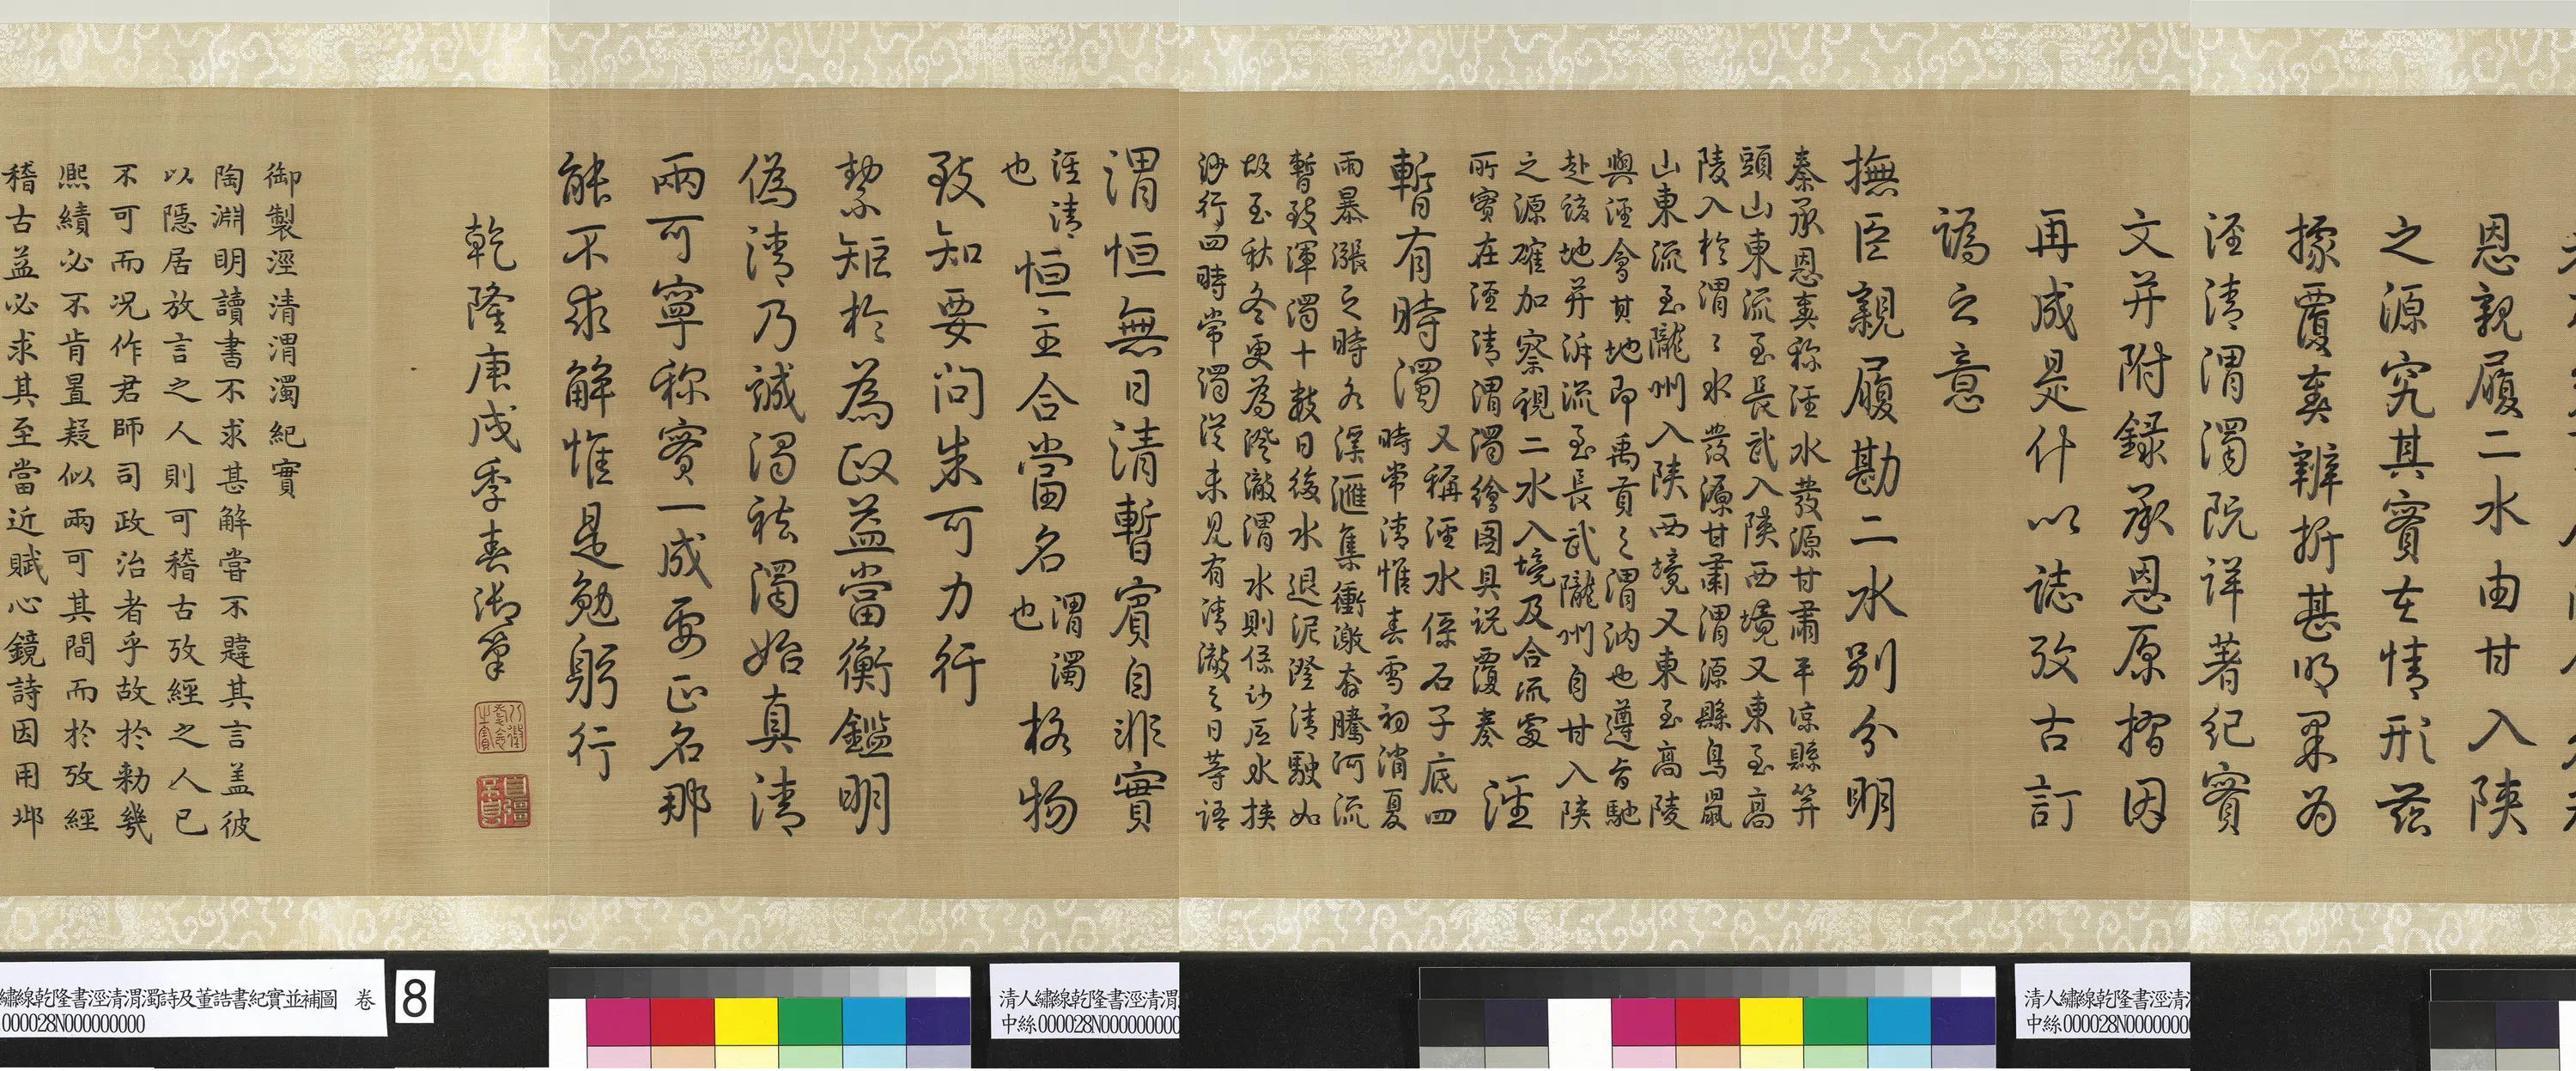 恩親履二水由甘入陝
之源究其實在情形茲
據覆奏辨折甚明果為
涇清渭濁既詳著紀實
文并附錄承恩原摺因
再成是什以誌攷古訂
譌之意
撫臣親履勘二水別分明
秦承恩奏稱涇水發源甘肅平涼縣笄
頭山東流至長武入陝西境又東至高
陵入於渭渭水發源甘肅渭源縣鳥鼠
山東流至隴州入陝西境又東至高陵
與涇會其地即禹貢之渭汭也遵旨馳
赴該地并泝流至長武隴州自甘入陝
之源確加察視二水入境及合流處
所實在涇清渭濁繪圖具說覆奏
涇
暫有時濁
又稱涇水係石子底四
時常清惟春雪初消夏
雨暴漲之時各溪滙集衝激奔騰河流
暫致渾濁十數日後水退泥澄清駛如
故至秋冬更為澄澈渭水則係沙底水挾
沙行四時常濁從未見有清澈之日等語
渭恒無日清暫賓自非實
涇清
也
恒主合當名
渭濁
也
格物
致知要問朱可力行
絜矩於為政益當衡鑑明
偽清乃誠濁祛濁始真清
兩可寧称實一成要正名那
能不求解惟是勉躬行
乾隆庚戌季春御筆
八徵耄念之寶
自彊不息
御製涇清渭濁紀實
陶淵明讀書不求甚解嘗不韙其言盖彼
以隱居放言之人則可稽古攷經之人已
不可而况作君師司政治者乎故於勅幾
熙績必不肯置疑似兩可其間而於攷經
稽古益必求其至當近賦心鏡詩因用邶
繡線乾隆書涇清渭濁詩及董誥書紀實並補圖 卷
000028N000000000
8
清人繡線乾隆書涇清渭
中絲000028N000000000
清人繡線乾隆書涇清
中絲000028N0000000